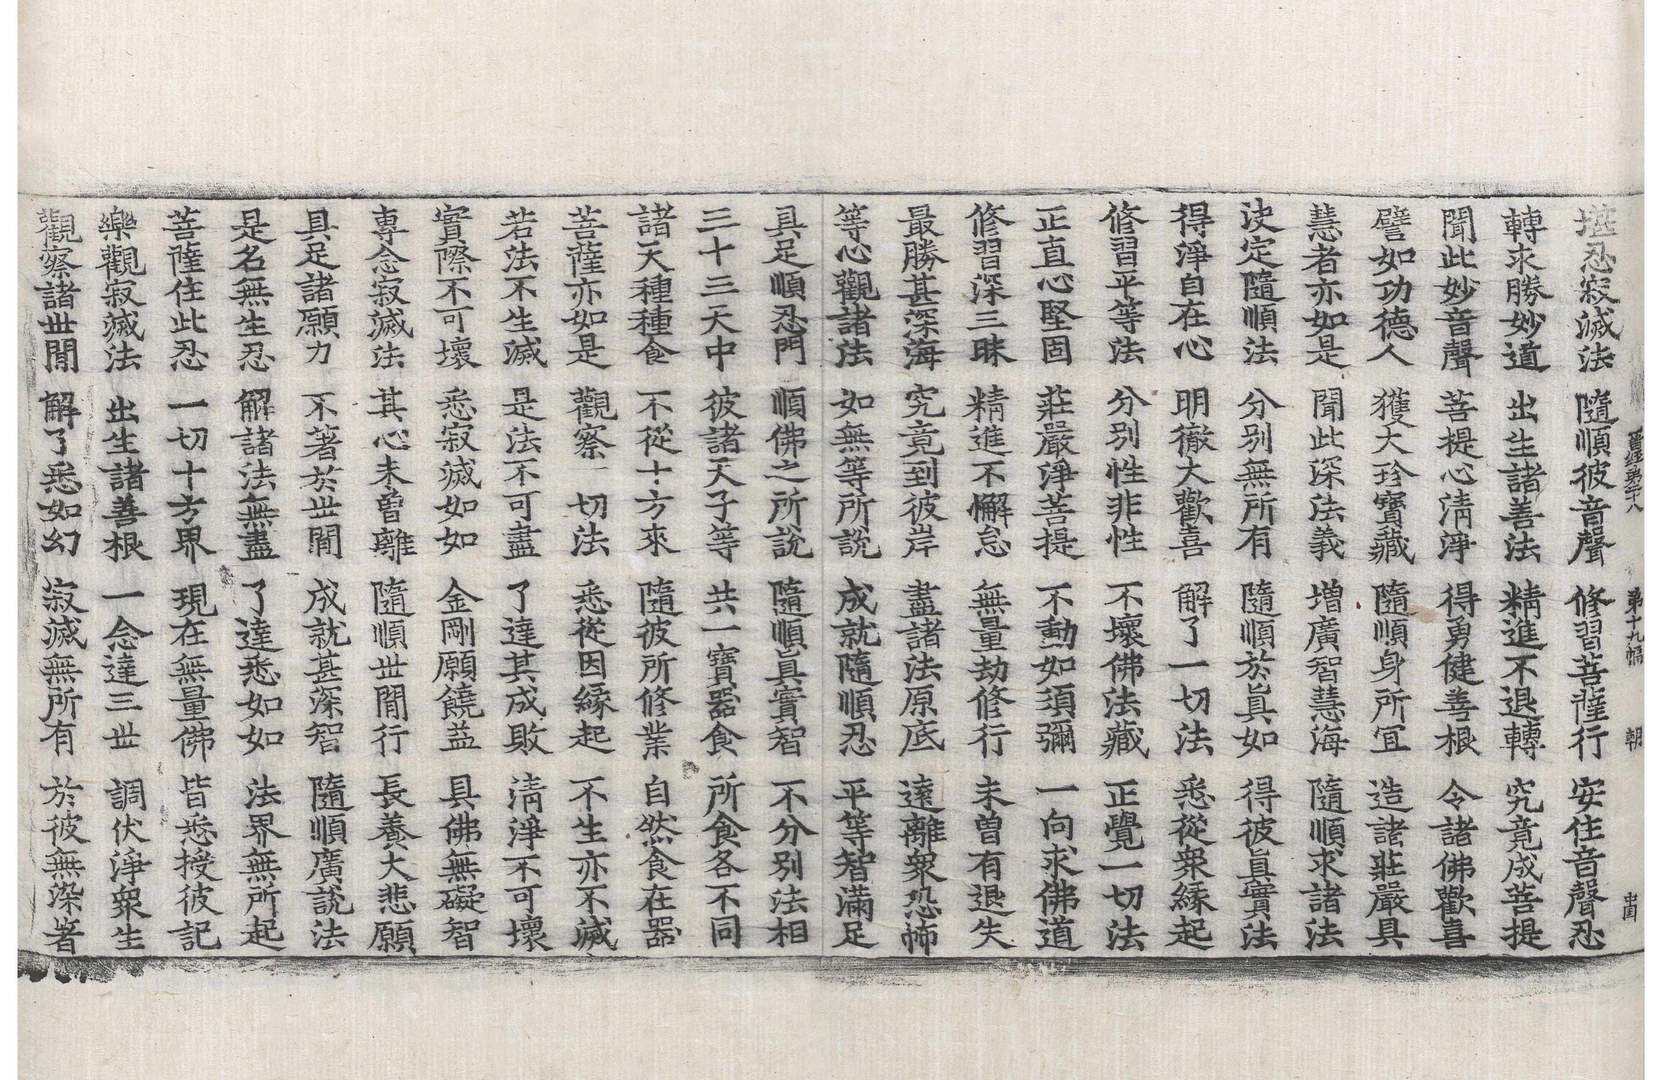 堪忍寂滅法 隨順彼音聲 修習菩薩行 安住音聲忍
轉求勝妙道 出生諸善法 精進不退轉 究竟成菩提
聞此妙音聲 菩提心清淨 得勇健善根 令諸佛歡喜
譬如功德人 獲大珍寶藏 隨順身所冝 造諸莊嚴具
慧者亦如是 聞此深法義 增廣智慧海 隨順求諸法
決定隨順法 分別無所有 隨順於眞如 得彼眞實法
得淨自在心 明徹大歡喜 解了一切法 悉從衆緣起
修習平等法 分別性非性 不壞佛法藏 正覺一切法
正直心堅固 莊嚴淨菩提 不動如須彌 一向求佛道
修習深三昧 精進不懈怠 無量劫修行 未曾有退失
最勝甚深海 究竟到彼岸 盡諸法原底 遠離衆恐怖
等心觀諸法 如無等所說 成就隨順忍 平等智滿足
具足順忍門 順佛之所說 隨順眞實智 不分別法相
三十三天中 彼諸天子等 共一寶器食 所食各不同
諸天種種食 不從十方來 隨彼所修業 自然食在器
菩薩亦如是 觀察一切法 悉從因緣起 不生亦不滅
若法不生滅 是法不可盡 了達其成敗 清淨不可壞
實際不可壞 悉寂滅如如 金剛願饒益 具佛無礙智
專念寂滅法 其心未曾離 隨順世閒行 長養大悲願
具足諸願力 不著於世閒 成就甚深智 隨順廣說法
是名無生忍 解諸法無盡 了達悉如如 法界無所起
菩薩住此忍 一切十方界 現在無量佛 皆悉授彼記
樂觀寂滅法 出生諸善根 一念達三世 調伏淨衆生
觀察諸世閒 解了悉如幻 寂滅無所有 於彼無染著
第十九幅 朝